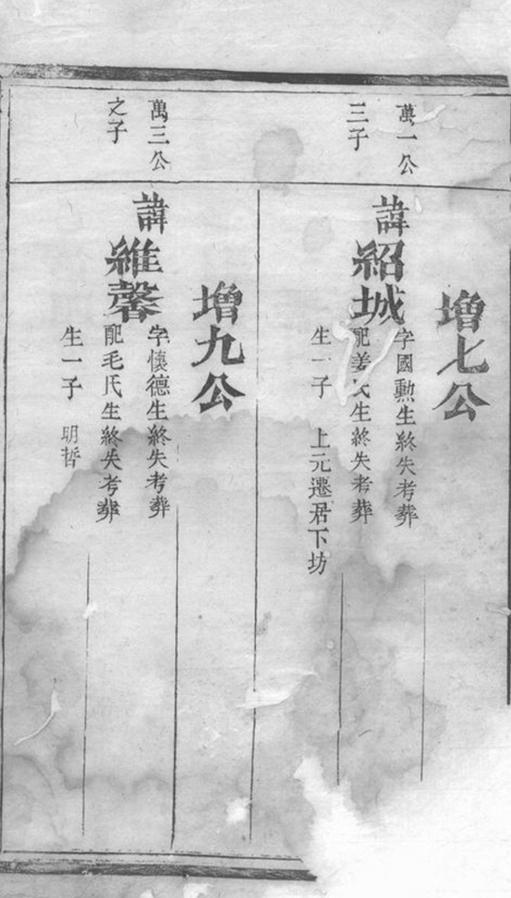 萬一公
三子
增七公
諱紹城
字國勳生終失考葬
配姜氏生終失考葬
生一子　上元遷居下坊
萬三公
之子
增九公
諱維馨
字懷德生終失考葬
配毛氏生終失考葬
生一子　明哲